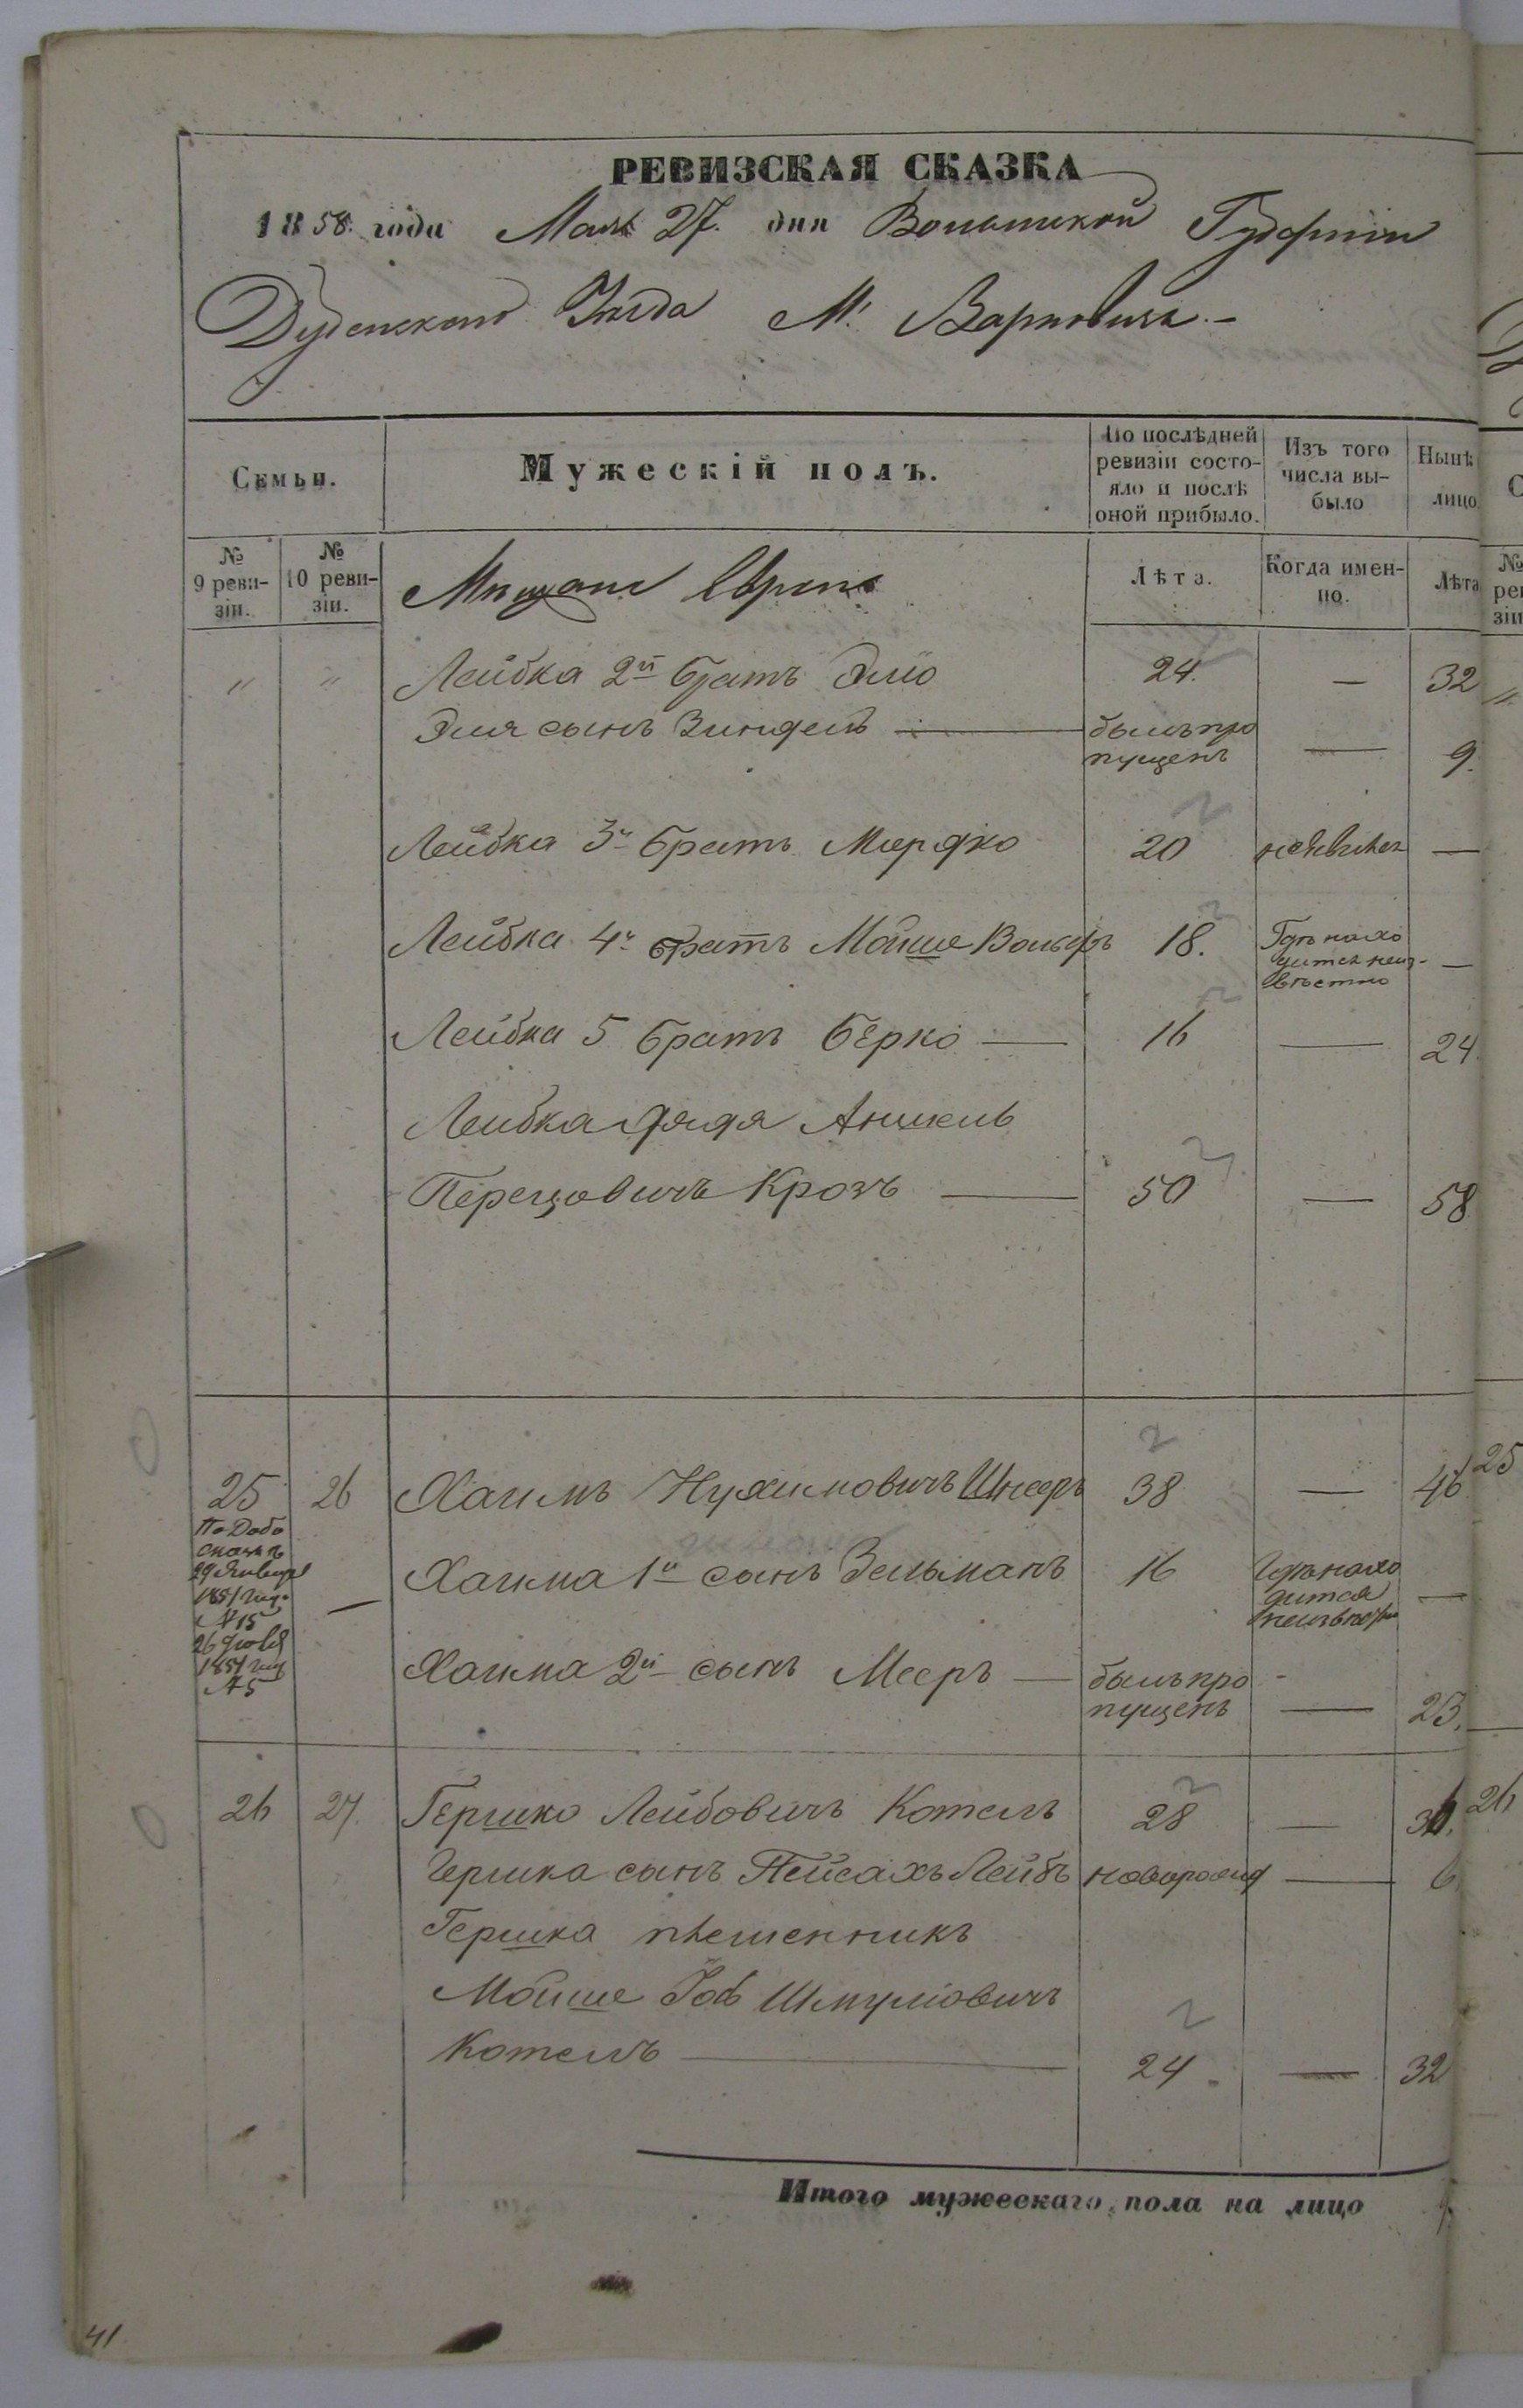 РЕВИЗСКАЯ СКАЗКА
1858 года Мая 27. дня Волынской Губернии
Дубенского Уезда М. Варковичь.-
Семьи.
Мужескій полъ.
По послѣдней ревизіи состо-
яло и послѣ оной прибыло.
Изъ того числа вы-
было
Нынѣ лицо
№ 9 реви-
зіи.
№ 10 реви-
зіи.
Мещане Евреи
Лѣта.
Когда имен-
но.
Лѣта
" " Лейбка 2й братъ Элio 24. — 32
Эля сынъ Зиндель — былъ про
пущенъ — 9.
Лейбка 3й братъ Мордко 20 неявился —
Лейбка 4й братъ Мойше Вольфъ 18. Где нахо
дится неиз-
вѣстно —
Лейбка 5 братъ Берко — 16 — 24
Лейбка дядя Аншель
Перецовичъ Крозъ — 50 — 58
25 26 Хаимъ Нухимовичъ Шнееръ 38 — 46
По Доба
сказкѣ
29 Января
1851 года
№ 15
26
1851 года
№ 5
Хаима 1й сынъ Зельманъ 16 Где нахо
дится
неизвестно —
Хаима 2й сынъ Мееръ — былъ про
пущенъ — 23.
26 27. Гершко Лейбовичъ Котелъ 28 — 36.
Гершка сынъ Пейсахъ Лейбъ новорожд — 6
Гершка племенникъ
Мойше Іоб Шмуліовичъ
Котелъ — 24. — 32
Итого мужескаго пола на лицо
41
25
26